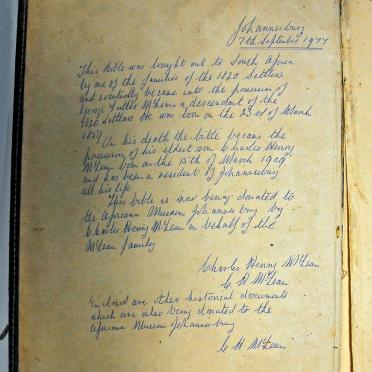 Johannesburg
7th September 1977
This Bible was brought out to South Africa
by one of the families of the 1820 Settlers
and eventually became into the possession of
George Fuller McLean a descendant of the
1820 Settlers. He was born on the 23rd of March
1857
On his death the bible became the
possession of his eldest son Charles Henry
McLean born on the 15th of March 1909
and has been a resident of Johannesburg
all his life.
This bible is now being donated to
the Africana Museum Johannesburg by
Charles Henry McLean on behalf of the
McLean family
Charles Henry McLean
C H McLean
Enclosed are other historical documents
which are also being donated to the
Africana Museum Johannesburg
C H McLean